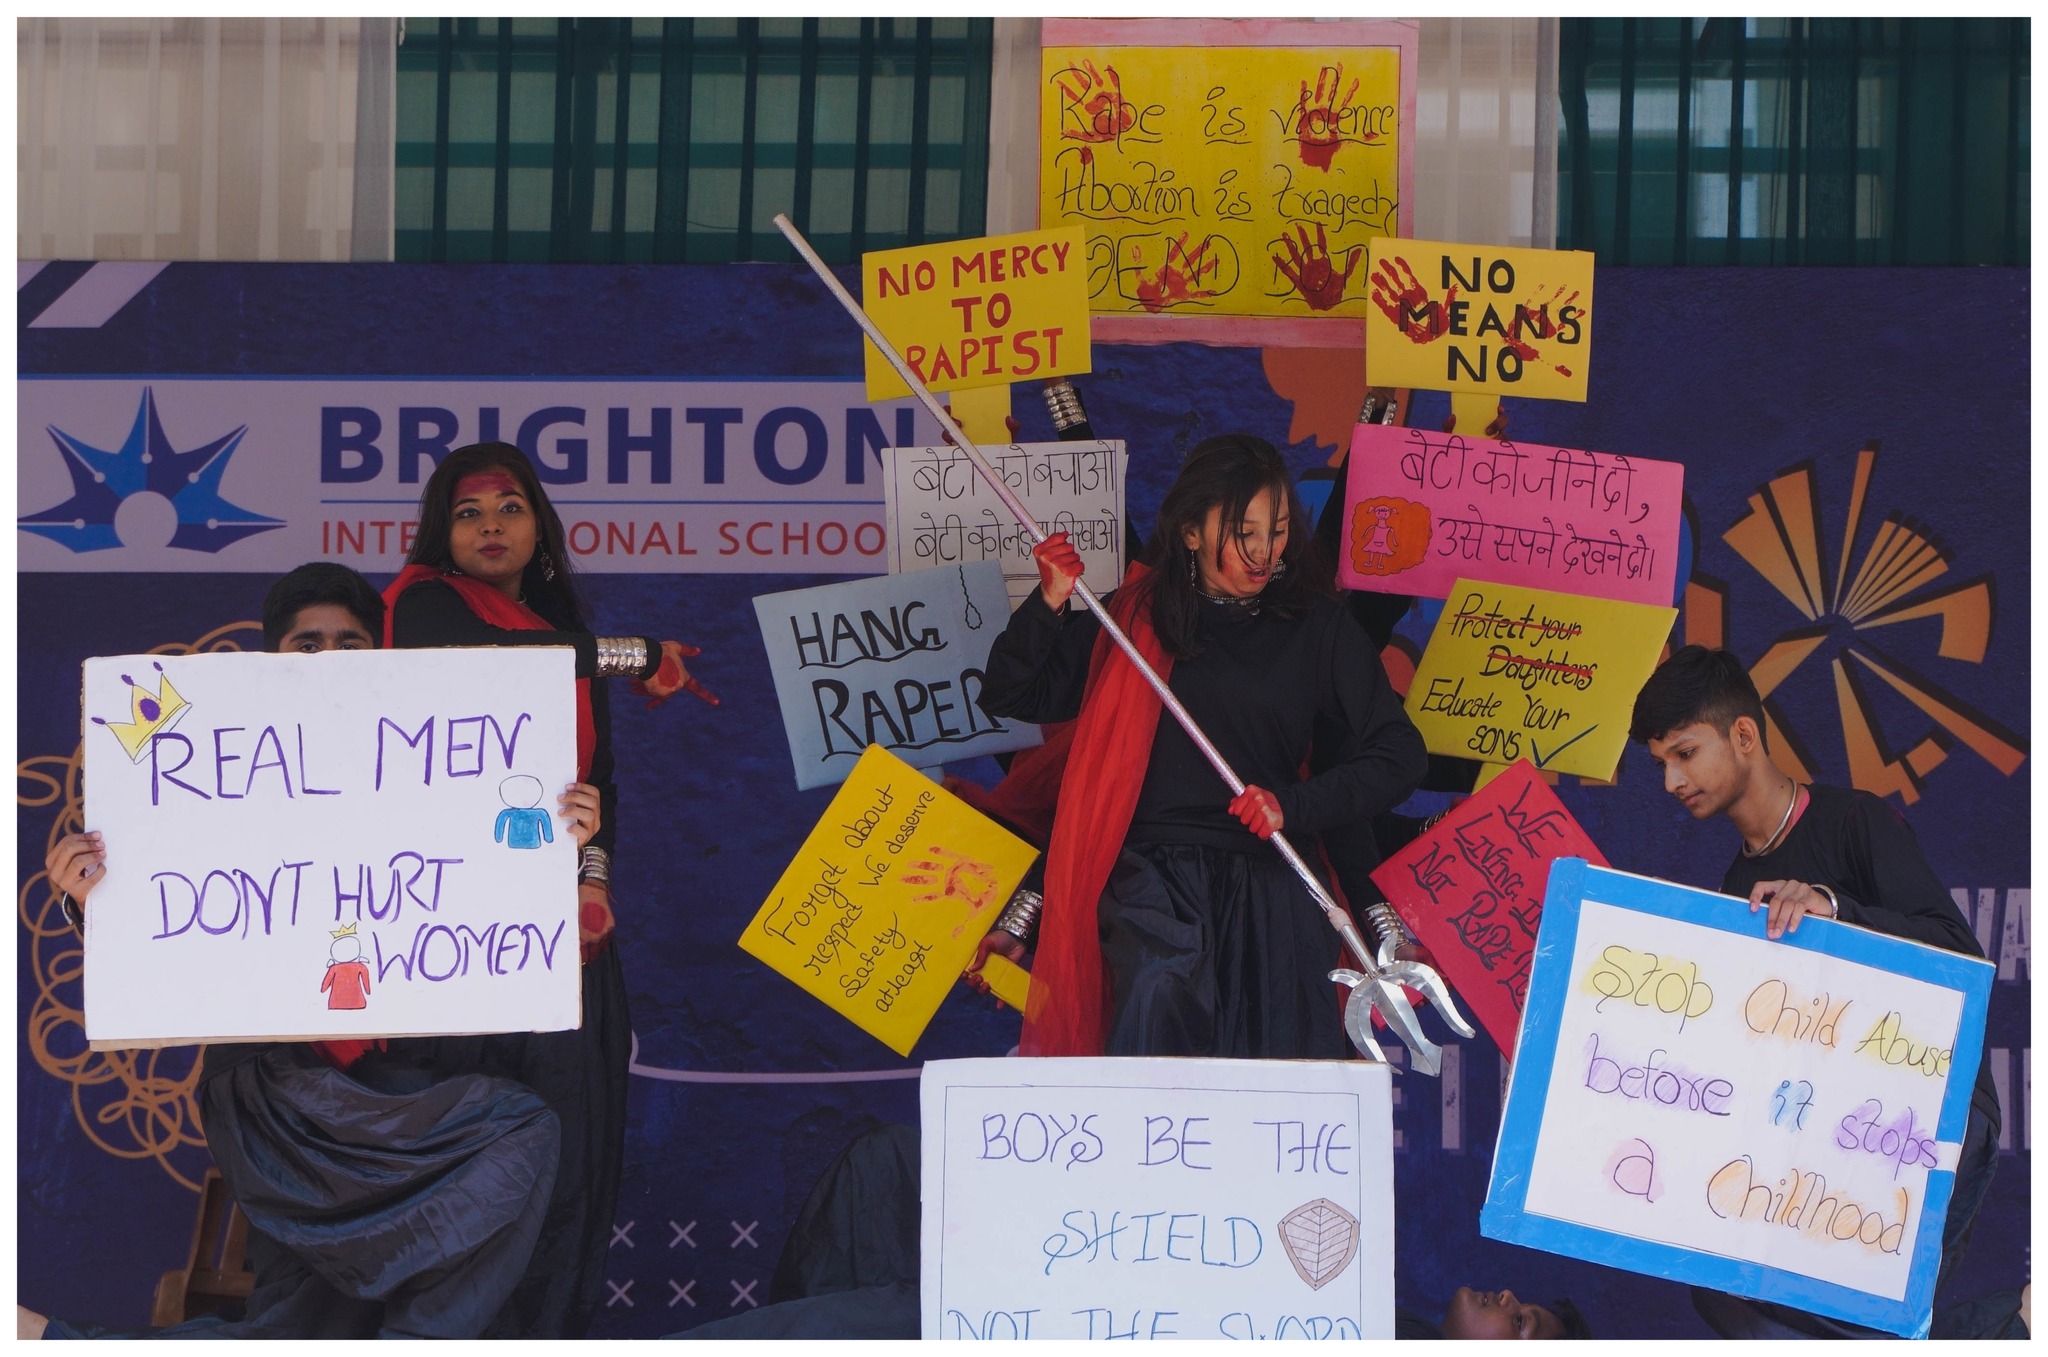 Rape is violence
Abortion is tragedy
END BOTH
NO MERCY
TO
RAPIST
NO
MEANS
NO
BRIGHTON
INTE ONAL SCHOO
बेटी को बचाओ
बेटी को लड़ना सिखाओ
बेटी को जीने दो,
उसे सपने देखने दो।
HANG
RAPER
Protect your
Daughters
Educate Your
SONS
REAL MEN
DONT HURT
WOMEN
Forget about
respect We deserve
Safety
atleast
WE
LIVING I
NOT
RAPE
Stop Child Abuse
before it stops
a Childhood
BOYS BE THE
SHIELD
NOT THE SWORD